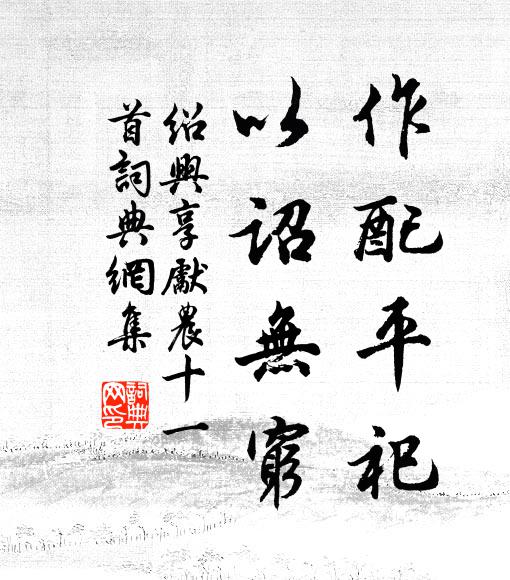 作配平祀
以詔無窮
紹興享獻農十一
首詞典網集
詞典
网印